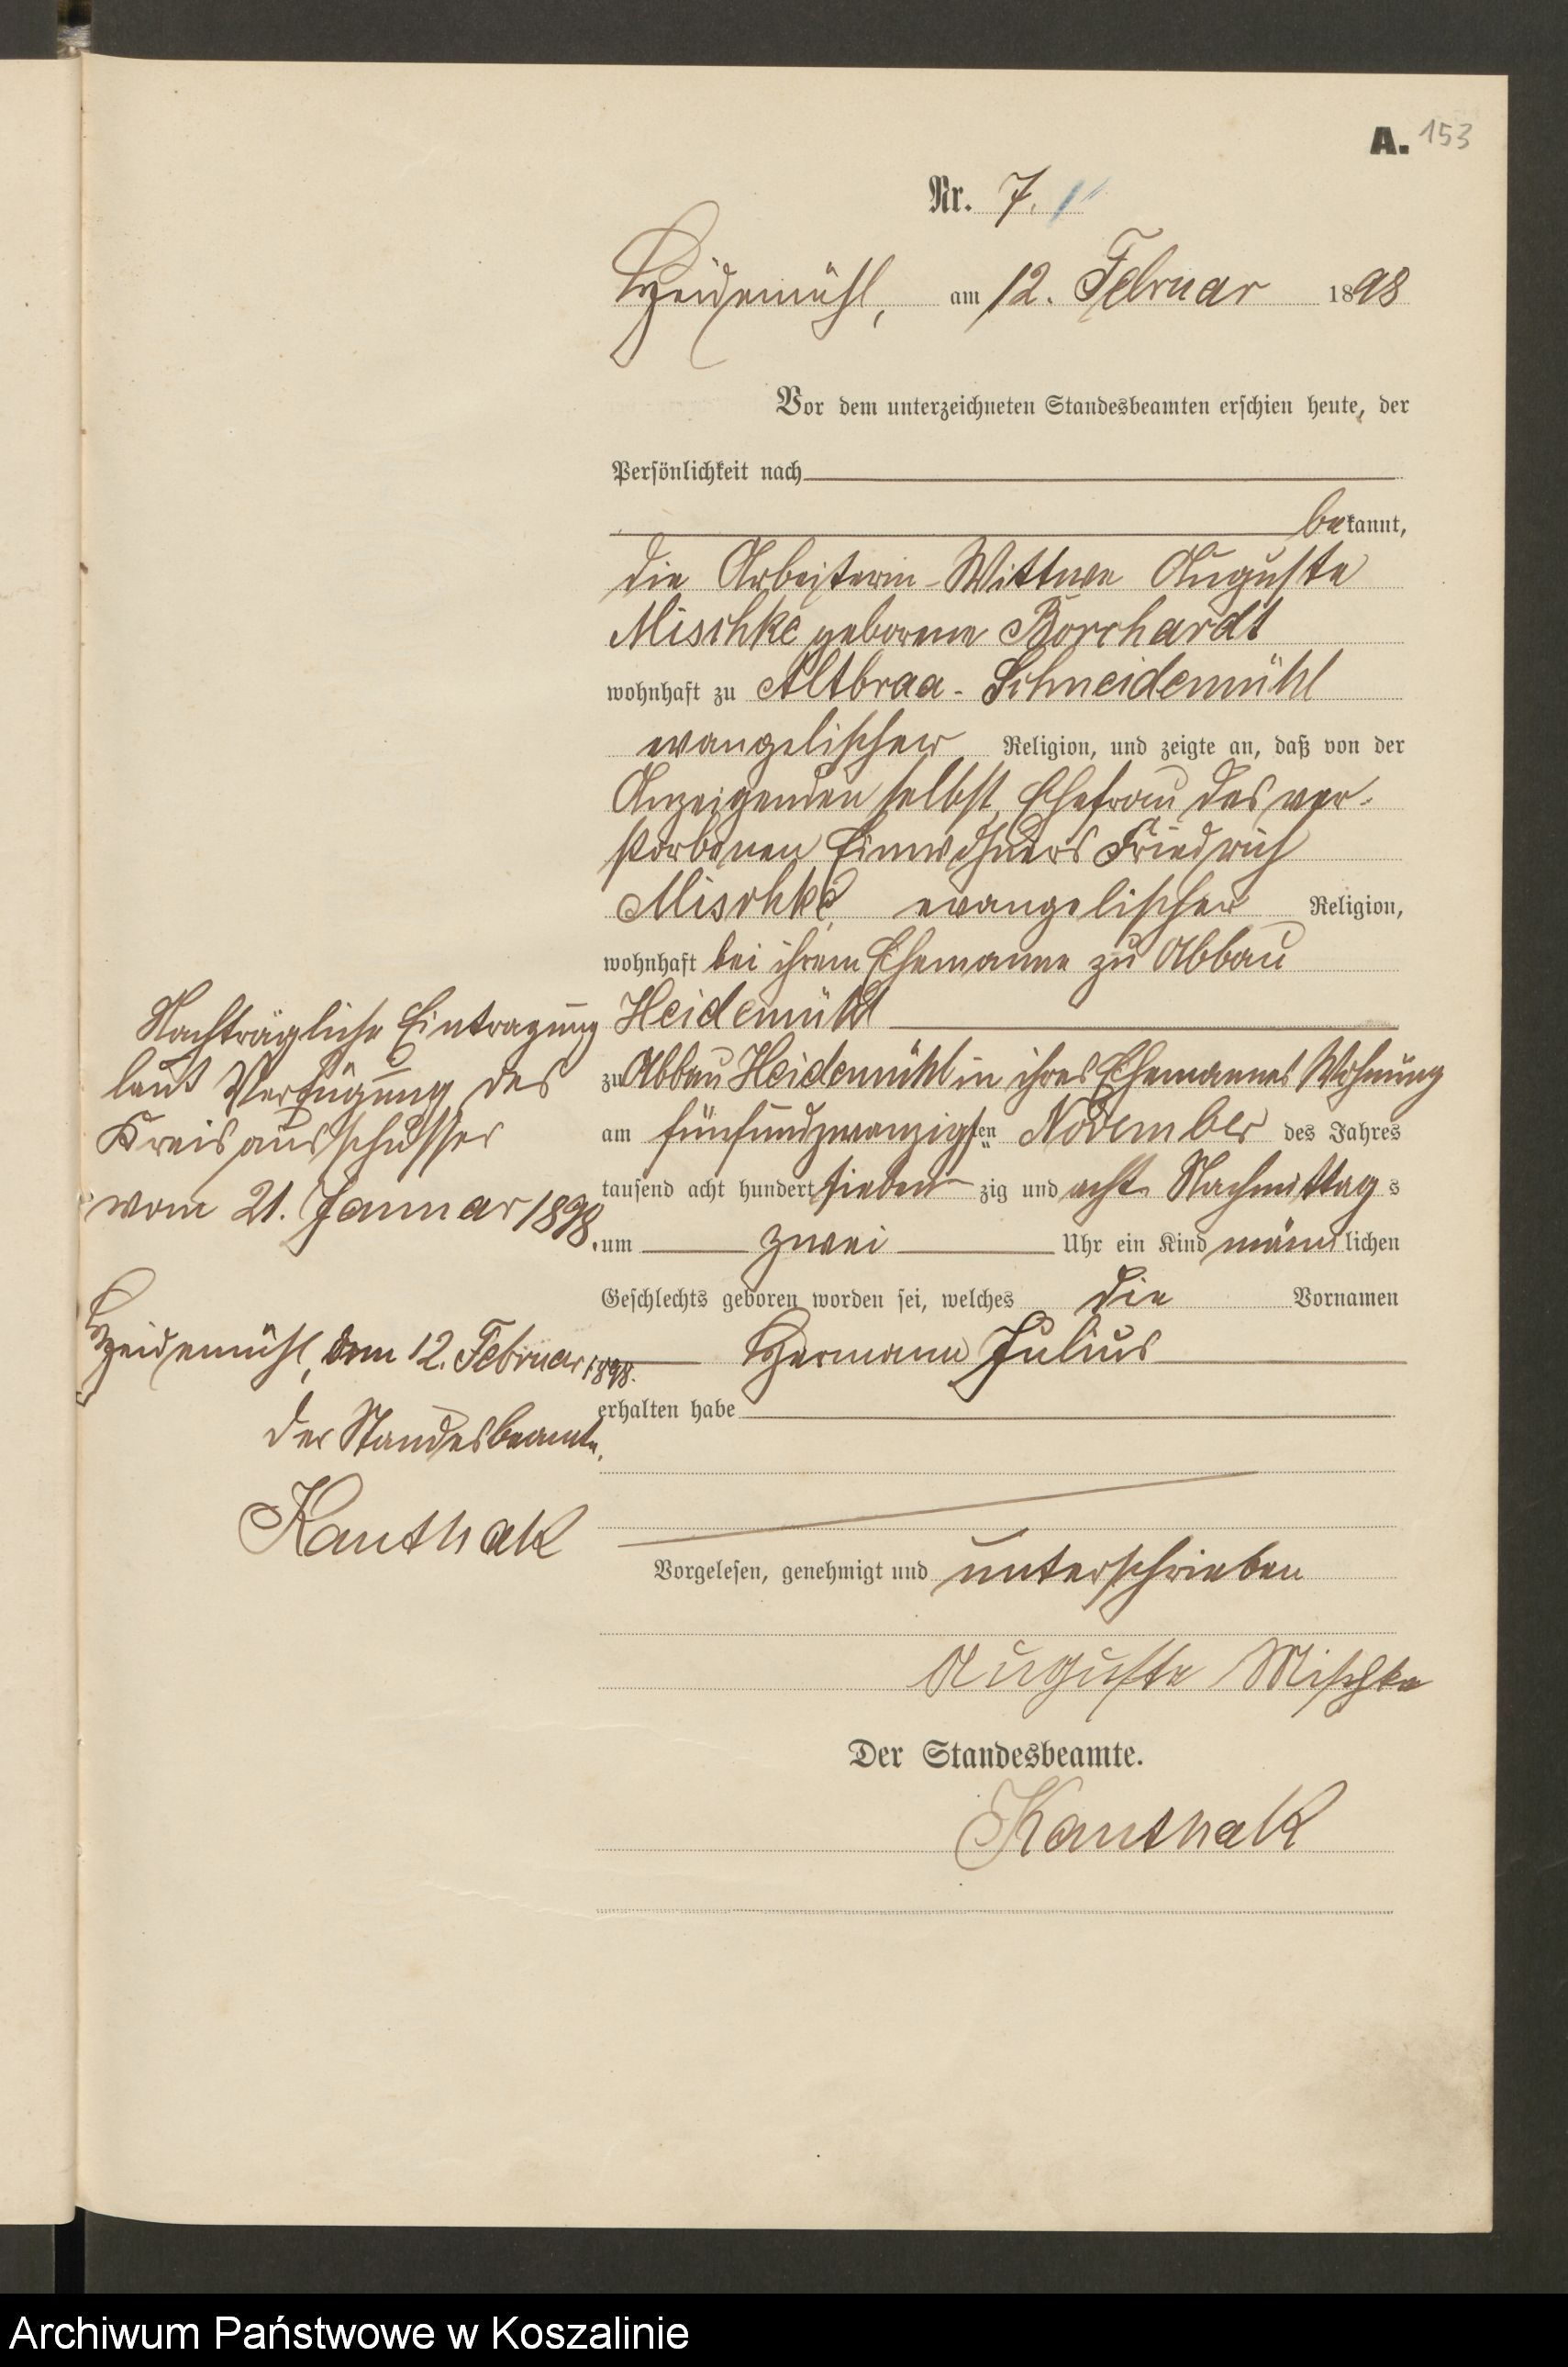 A. 153
Nr. 7.
Heidemühl, am 12. Februar 1898
Vor dem unterzeichneten Standesbeamten erschien heute, der
Persönlichkeit nach
bekannt,
die Arbeiterin-Wittwe Auguste
Mischke geborene Borchardt
wohnhaft zu Altbraa-Schneidemühl
evangelischer Religion, und zeigte an, daß von der
Anzeigenden selbst, Ehefrau des ver-
storbenen Einwohners Friedrich
Mischke, evangelischer Religion,
wohnhaft bei ihrem Ehemanne zu Abbau
Heidemühl
zu Abbau Heidemühl in ihres Ehemannes Wohnung
am fünfundzwanzigsten November des Jahres
tausend acht hundert siebenzig und acht Nachmittags
um zwei Uhr ein Kind männlichen
Geschlechts geboren worden sei, welches die Vornamen
Hermann Julius
erhalten habe
Vorgelesen, genehmigt und unterschrieben
Auguste Mischke
Der Standesbeamte.
Kanthak
Nachträgliche Eintragung
laut Verfügung des
Kreisausschusses
vom 21. Januar 1898.
Heidemühl, den 12. Februar 1898.
Der Standesbeamte.
Kanthak
Archiwum Państwowe w Koszalinie